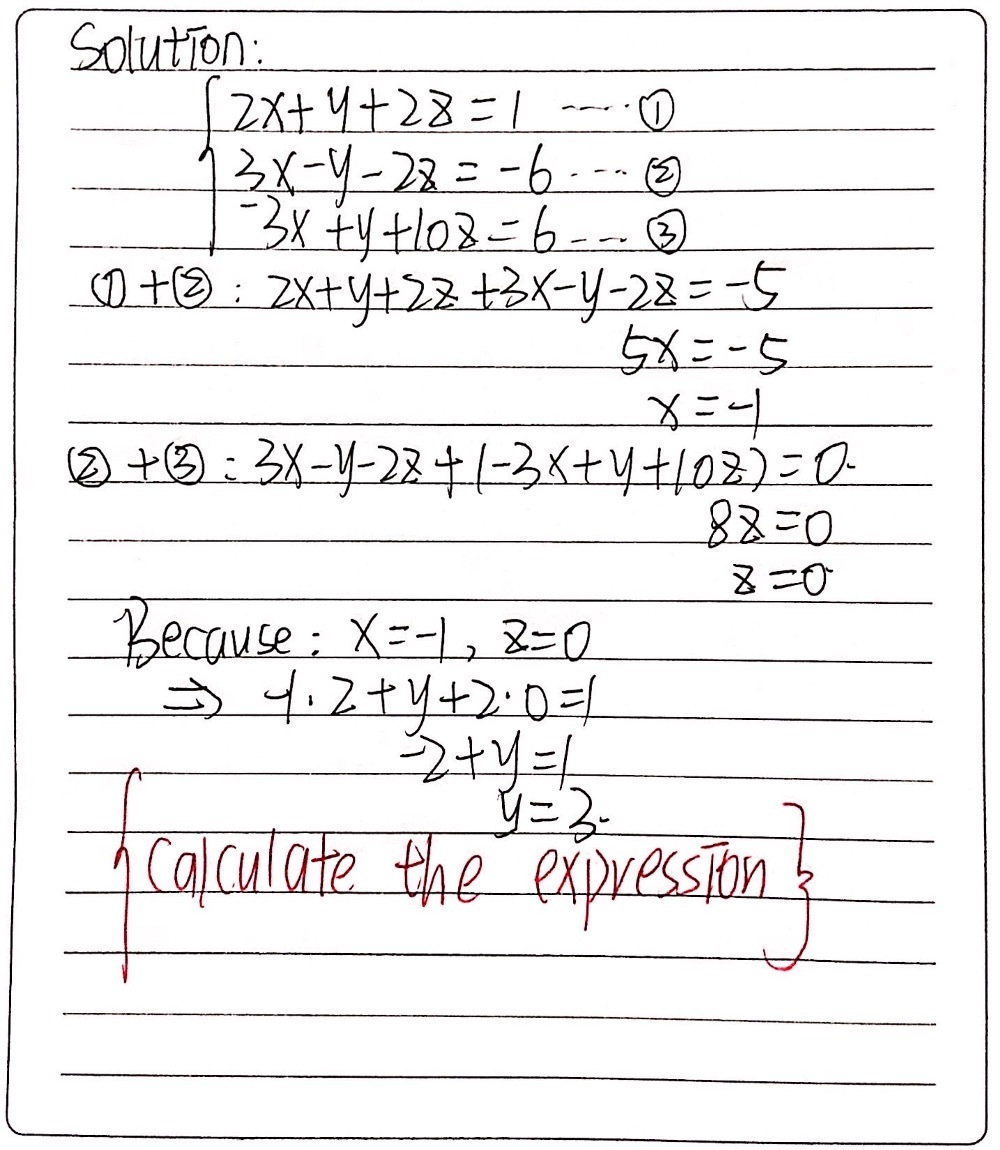 Solution:
2x+y+2z=1 ----- ①
3x-y-2z=-6 ---- ②
-3x+y+10z=6 ---- ③
①+②: 2x+y+2z+3x-y-2z=-5
5x=-5
x=-1
②+③: 3x-y-2z+(-3x+y+10z)=0.
8z=0
z=0
Because: x=-1, z=0
⇒ -1·2+y+2·0=1
-2+y=1
y=3.
{calculate the expression}